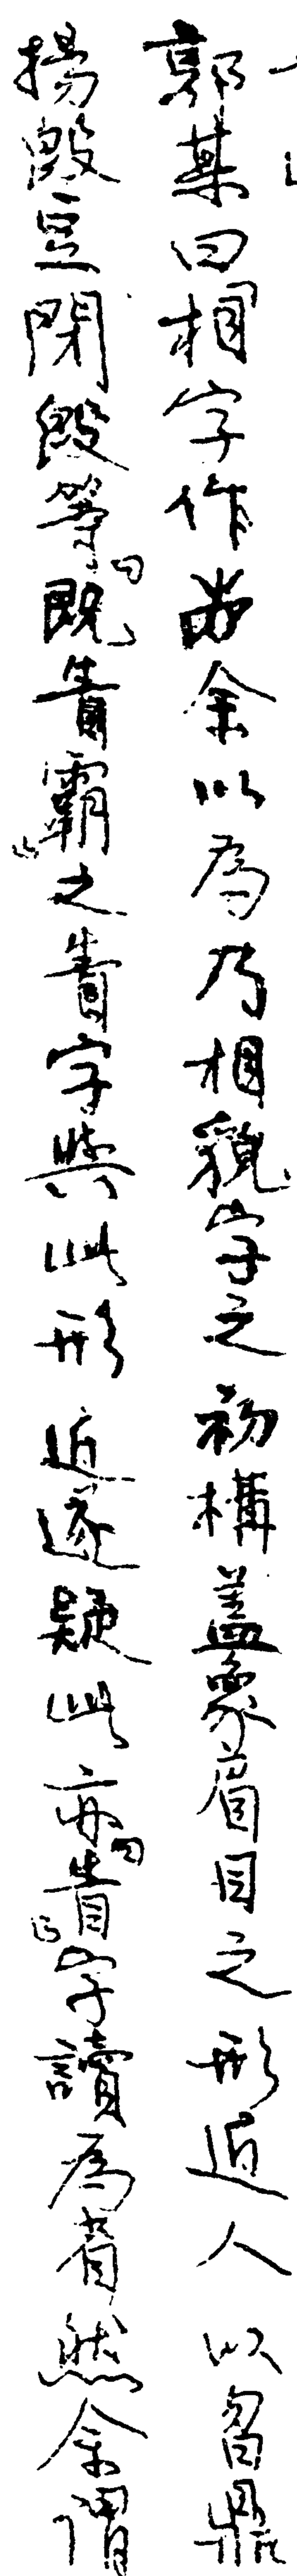 郭某曰相字作余以為乃相貌字之初構蓋象眉目之形近人以曶鼎
揚𣪘豆閉𣪘等「既眚霸」之眚字與此形近遂疑此亦「眚」字讀為省然余謂